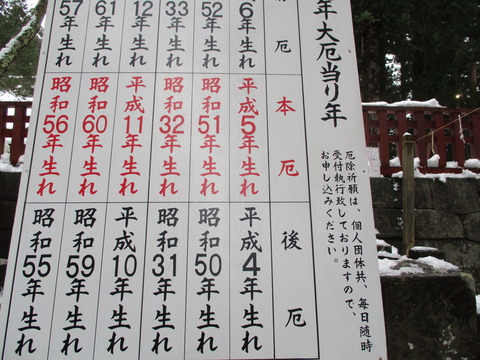 年大厄当り年
厄除祈願は、個人団体共、毎日随時
受付執行致しておりますので、
お申し込みください。
厄
6年生れ
52年生れ
33年生れ
12年生れ
61年生れ
57年生れ
本厄
平成5年生れ
昭和51年生れ
昭和32年生れ
平成11年生れ
昭和60年生れ
昭和56年生れ
後厄
平成4年生れ
昭和50年生れ
昭和31年生れ
平成10年生れ
昭和59年生れ
昭和55年生れ